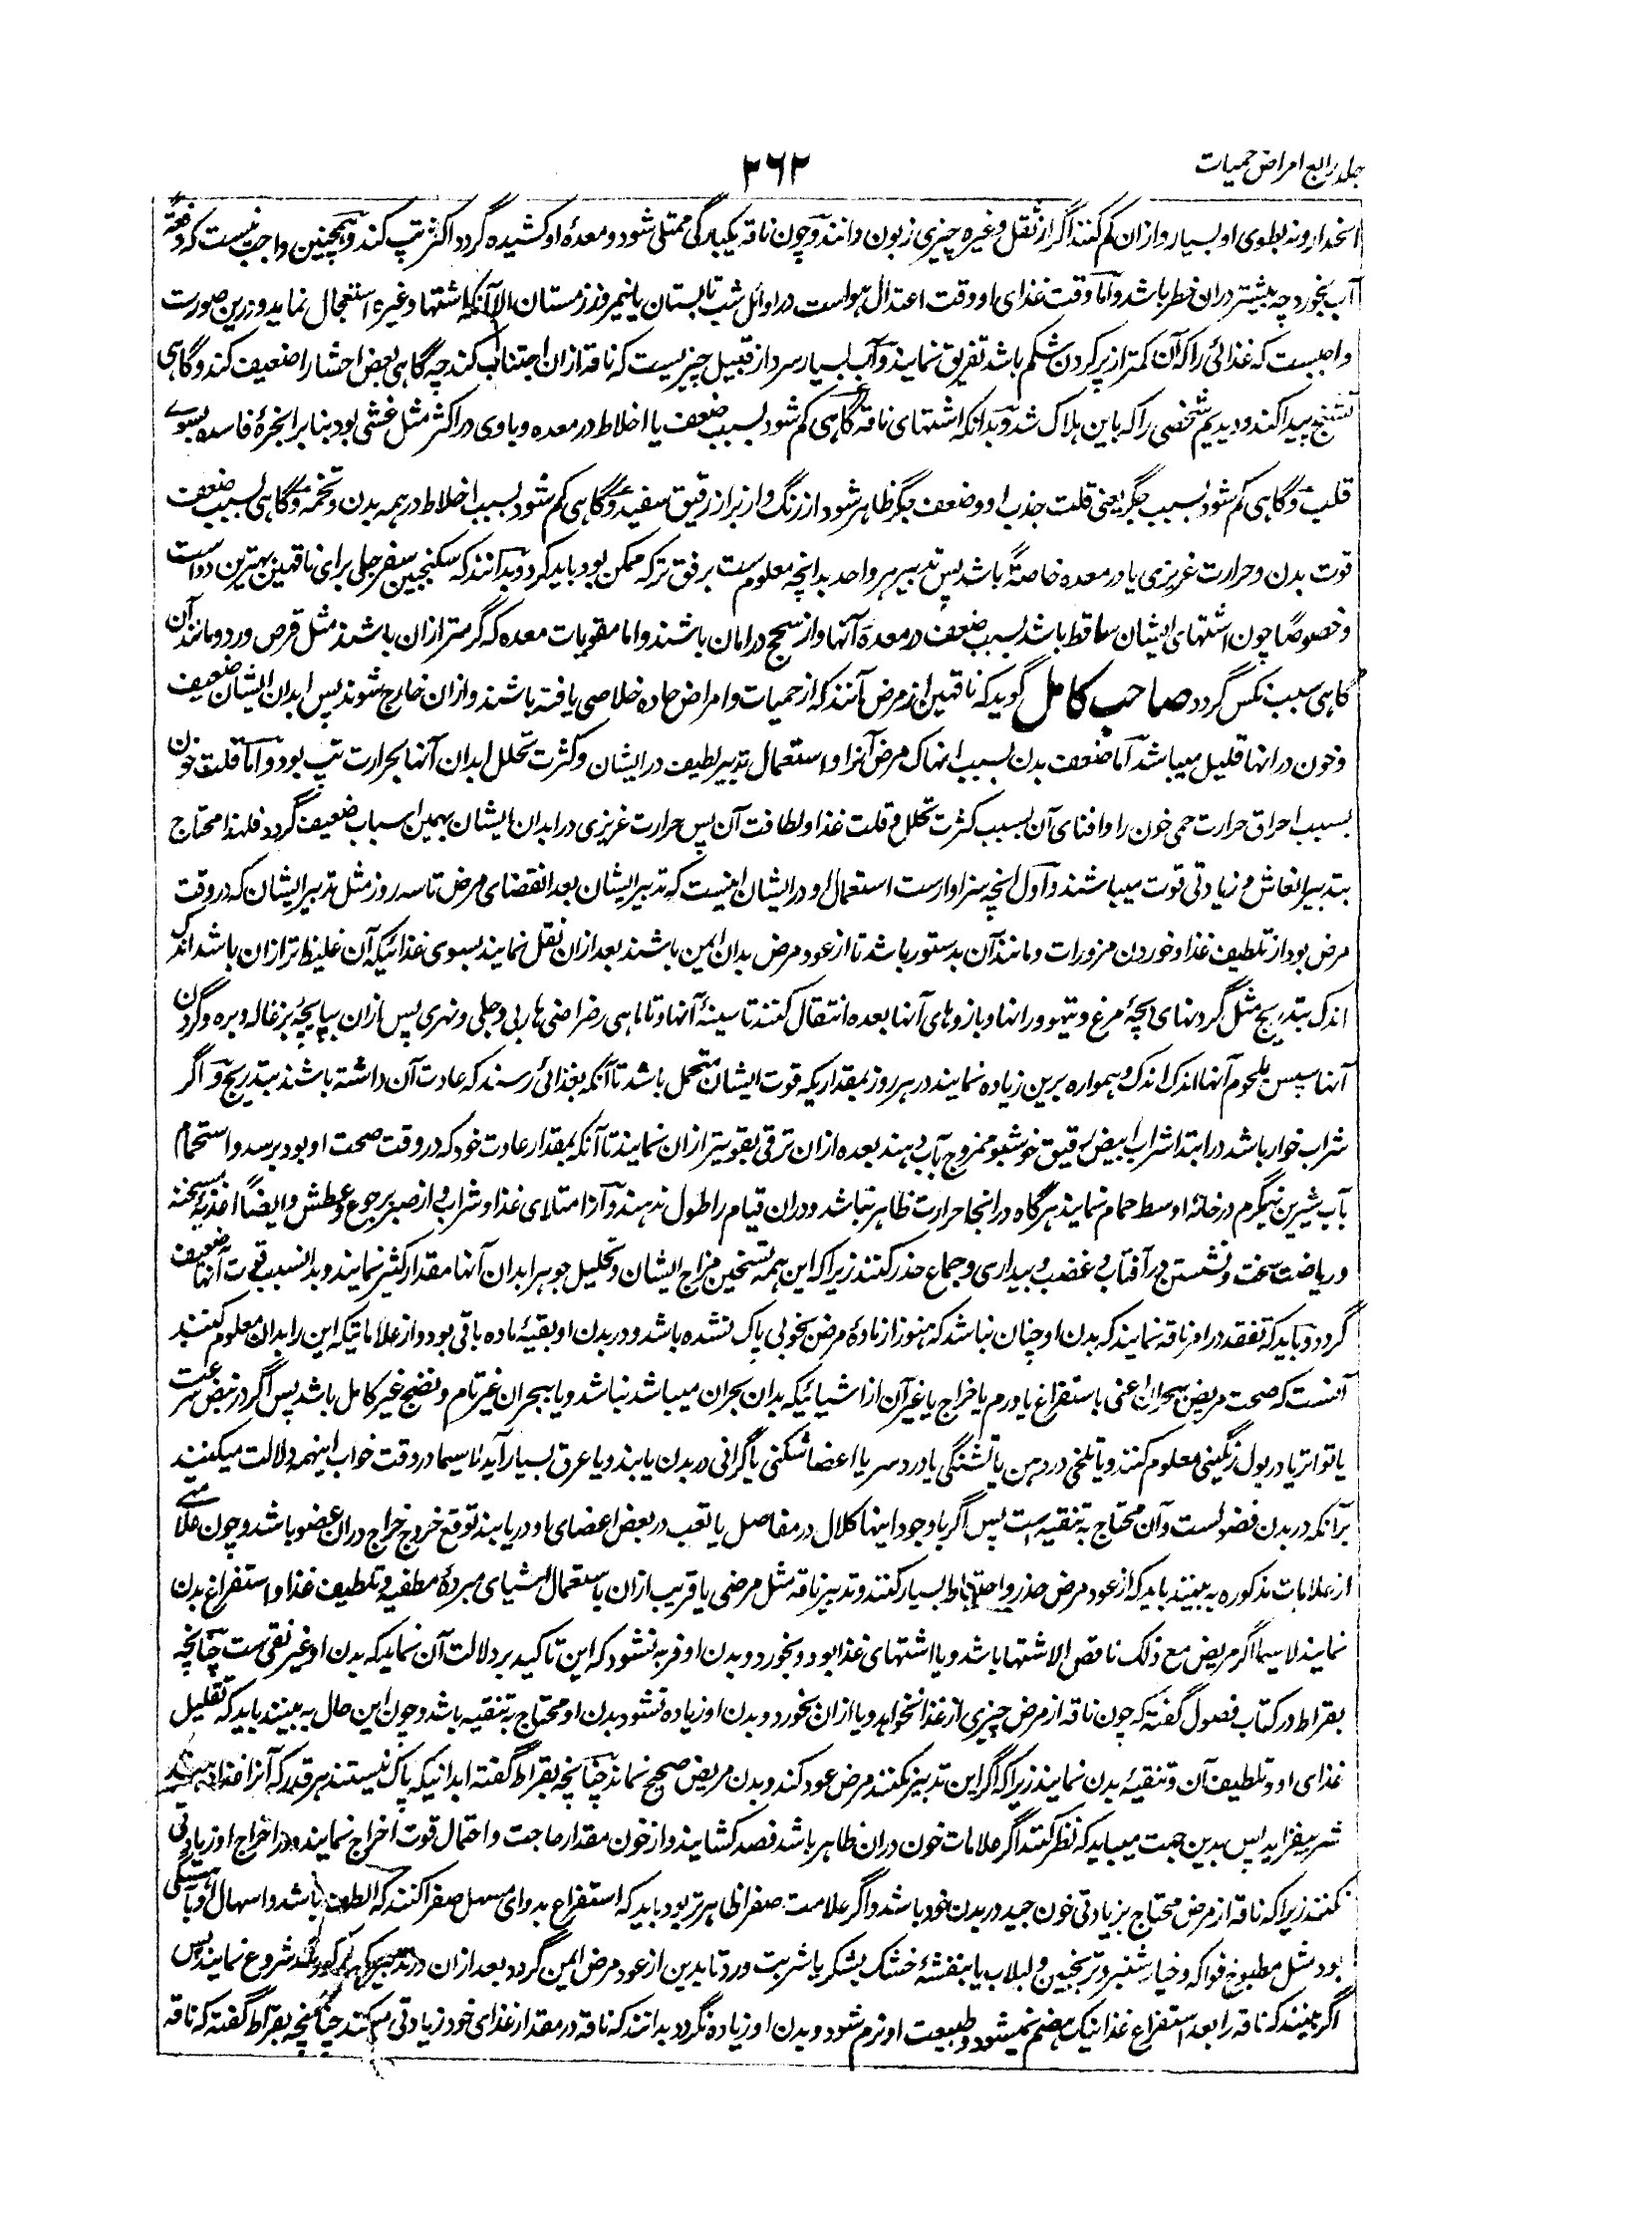 جلد رابع امراض حمیات
۳۶۲
انحدار وند بطوی او بسیار و ازان کم کنند اگر از ثقل و غیره چیزی زبون دانند و چون ناقه یکبارگی ممتلی شود و معدهٔ او کشیده گردد اکثر تپ کند و همچنین واجب نیست که دفعةً
آب بخورد چه بیشتر دران خطر باشد و اما وقت غذای او وقت اعتدال هواست در اوائل شب تابستان یا نیمروز زمستان الا آنکه اشتها و غیره استعجال نماید و زرین صورت
واجبست که غذائی را که آن کمتر از پر کردن شکم باشد تفریق نمایند و آب بسیار سرد از قبیل چیزیست که ناقه ازان اجتناب کند چه گاهی بعض احشا را ضعیف کند و گاهی
تشنج پیدا کند و دیدیم شخصی را که باین هلاک شد و بدانکه اشتهای ناقه گاهی کم شود بسبب ضعف یا اخلاط در معده و باوی در اکثر مثل غشی بود بنا بر ابخرهٔ فاسده بسوی
قلب و گاهی کم شود بسبب جگر یعنی قلت جذب او و ضعف جگر ظاهر شود از رنگ و از براز رقیق سفید و گاهی کم شود بسبب اخلاط در همه بدن و تخمه و گاهی بسبب ضعف
قوت بدن و حرارت غریزی یا در معده خاصةً باشد پس تدبیر هر واحد بدانچه معلوم ست برفق ترکه ممکن بود باید کرد و بدانند که سکنجبین سفرجلی برای ناقهین بهترین دواست
و خصوصاً چون اشتهای ایشان ساقط باشد بسبب ضعف در معدهٔ آنها و از سحج در امان باشند و اما مقویات معده که گرمتر ازان باشند مثل قرص ورد و مانند آن
گاهی سبب نکس گردد صاحب کامل گوید که ناقهین از مرض آنند که از حمیات و امراض حاده خلاصی یافته باشند و ازان خارج شوند پس ابدان ایشان ضعیف
و خون در انها قلیل میباشد اما ضعف بدن بسبب انهاک مرض آنرا و استعمال تدبیر لطیف در ایشان و کثرت تحلل ابدان آنها بحرارت تپ بود و اما قلت خون
بسبب احراق حرارت حمی خون را و افنای آن بسبب کثرت تحلل و قلت غذا و لطافت آن پس حرارت غریزی در ابدان ایشان بهمین اسباب ضعیف گردد فلهذا محتاج
بتدبیر انعاش و زیادتی قوت میباشند و اول انچه سزاوارست استعمال او در ایشان اینست که تدبیر ایشان بعد انقضای مرض تا سه روز مثل تدبیر ایشان که در وقت
مرض بود از تلطیف غذا و خوردن مزورات و مانند آن بدستور باشد تا از عود مرض بدان ایمن باشند بعد ازان نقل نمایند بسوی غذائیکه آن غلیظ تر ازان باشد اندک
اندک بتدریج مثل گردنهای بچهٔ مرغ و تیهو و رانها و بازوهای آنها بعده انتقال کنند تا سینهٔ آنها و تا ماهی رضراضی هاربی و جبلی و نهری پس ازان بپایچهٔ بزغاله و بره و گردن
آنها سپس بلحوم آنها اندک اندک و همواره برین زیاده نمایند در هر روز بمقداریکه قوت ایشان متحمل باشد تا آنکه بغذائی رسند که عادت آن داشته باشند بتدریج و اگر
شراب خوار باشد در ابتدا شراب ابیض رقیق خوشبو ممزوج بآب دهند بعده ازان ترقی بقویتر ازان نمایند تا آنکه بمقدار عادت خود که در وقت صحت او بود برسد و استحمام
بآب شیرین نیمگرم در خانهٔ اوسط حمام نمایند هرگاه در انجا حرارت ظاهر نباشد و دران قیام را طول ندهند و از امتلای غذا و شراب و از صبر بر جوع و عطش و ایضاً اغذیهٔ مسخنه
و ریاضت سخت و نشستن در آفتاب و غضب و بیداری و جماع حذر کنند زیرا که این همه تسخین مزاج ایشان و تحلیل جوهر ابدان آنها مقدار کثیر نمایند و بدانسبب قوت آنها ضعیف
گردد و باید که تفقد در امر ناقه نمایند که بدن او چنان نباشد که هنوز از مادهٔ مرض بخوبی پاک نشده باشد و در بدن او بقیهٔ ماده باقی بود و از علاماتیکه این را بدان معلوم کنند
آنست که صحت مریض ببحران اعنی باستفراغ یا ورم یا خراج یا غیر آن از اشیائیکه بدان بحران میباشد نباشد و یا ببحران غیر تام و نضج غیر کامل باشد پس اگر در نبض سرعت
یا تواتر یا در بول رنگینی معلوم کنند و یا تلخی در دهن یا تشنگی یا درد سر یا اعضا شکنی یا گرانی در بدن یابند و یا عرق بسیار آید لاسیما در وقت خواب اینهمه دلالت میکنند
برآنکه در بدن فضولست و آن محتاج به تنقیه است پس اگر باوجود اینها کلال در مفاصل یا تعب در بعض اعضای او دریابند توقع خروج خراج دران عضو باشد و چون علامتے
از علامات مذکوره به بینند باید که از عود مرض حذر و احتیاط بسیار کنند و تدبیر ناقه مثل مرضی یا قریب ازان باستعمال اشیای مبردهٔ مطفیه و تلطیف غذا و استفراغ بدن
نمایند لاسیما اگر مریض مع ذلک ناقص الاشتها باشد و یا اشتهای غذا بود و بخورد و بدن او فربه نشود که این تاکید بر دلالت آن نماید که بدن او غیر نقی ست چنانچه
بقراط در کتاب فصول گفته که چون ناقه از مرض چیزی از غذا نخواهد و یا ازان بخورد و بدن او زیاده نشود بدن او محتاج به تنقیه باشد و چون این حال به بینند باید که تقلیل
غذای او و تلطیف آن و تنقیهٔ بدن نمایند زیرا که اگر این تدبیر نکنند مرض عود کند و بدن مریض صحیح نماند چنانچه بقراط گفته ابدانیکه پاک نیستند هر قدر که آنرا غذا دهند
شر بیفزاید پس بدین جهت میباید که نظر کنند اگر علامات خون دران ظاهر باشد فصد کشایند و از خون مقدار حاجت و احتمال قوت اخراج نمایند و در اخراج او زیادتی
نکنند زیرا که ناقه از مرض محتاج بزیادتی خون جید در بدن خود باشد و اگر علامت صفرا ظاهر تر بود باید که استفراغ بدوای مسهل صفرا کنند که الطف باشد و اسهال او بآهستگی
بود مثل مطبوخ فواکه و خیارشنبر و ترنجبین و لبلاب یا بنفشهٔ خشک بشکر یا شربت ورد تا بدین از عود مرض ایمن گردد بعد ازان در تدبیریکه مذکور شد شروع نمایند پس
اگر بینند که ناقه را بعد استفراغ غذا نیک هضم نمیشود و طبیعت او نرم شود و بدن او زیاده نگردد بدانند که ناقه در مقدار غذای خود زیادتی میکند چنانچه بقراط گفته که ناقه